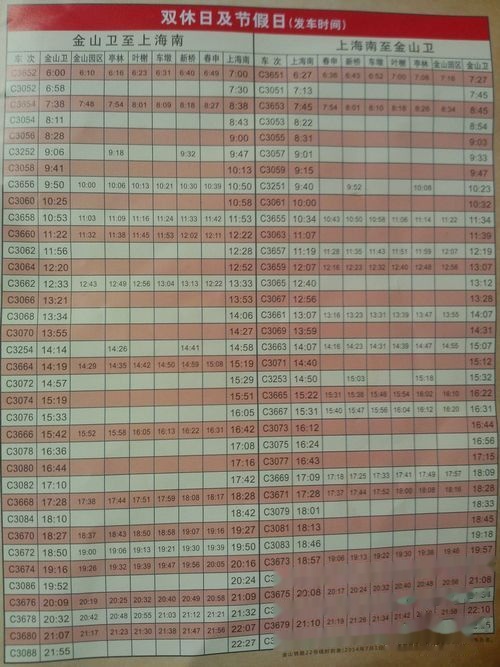 双休日及节假日(发车时间)
金山卫至上海南 上海南至金山卫
车次 金山卫 金山园区 亭林 叶榭 车墩 新桥 春申 上海南 车次 上海南 春申 新桥 车墩 叶榭 亭林 金山园区 金山卫
C3652 6:00 6:10 6:16 6:23 6:31 6:40 6:49 7:00 C3651 6:27 6:36 6:43 6:52 7:00 7:08 7:18 7:27
C3052 6:58 7:30 C3051 7:13 7:45
C3654 7:38 7:48 7:54 8:01 8:09 8:18 8:27 8:38 C3653 7:45 7:54 8:01 8:10 8:18 8:26 8:34 8:45
C3054 8:11 8:43 C3053 8:22 8:54
C3056 8:28 9:00 C3055 8:31 9:03
C3252 9:06 9:18 9:32 9:47 C3057 9:01 9:33
C3058 9:41 10:13 C3059 9:15 9:47
C3656 9:50 10:00 10:06 10:13 10:21 10:30 10:39 10:50 C3251 9:40 9:52 10:08 10:23
C3060 10:25 10:58 C3061 10:00 10:32
C3658 10:53 11:03 11:09 11:16 11:24 11:33 11:42 11:53 C3655 10:34 10:43 10:50 10:58 11:06 11:14 11:22 11:34
C3660 11:22 11:32 11:38 11:45 11:53 12:02 12:11 12:22 C3063 11:07 11:39
C3062 11:56 12:28 C3657 11:19 11:28 11:35 11:43 11:51 11:59 12:07 12:19
C3064 12:20 12:52 C3659 12:07 12:16 12:23 12:32 12:40 12:48 12:56 13:07
C3662 12:33 12:43 12:49 12:56 13:04 13:13 13:22 13:33 C3065 12:40 13:12
C3066 13:21 13:53 C3067 12:56 13:28
C3068 13:34 14:06 C3661 13:07 13:16 13:23 13:31 13:39 13:47 13:55 14:07
C3070 13:55 14:27 C3069 13:59 14:31
C3254 14:14 14:26 14:41 14:58 C3663 14:07 14:16 14:23 14:31 14:39 14:47 14:55 15:07
C3664 14:19 14:29 14:35 14:42 14:50 14:59 15:08 15:19 C3071 14:40 15:12
C3072 14:57 15:29 C3253 14:50 15:03 15:18 15:32
C3074 15:19 15:51 C3665 15:22 15:31 15:38 15:46 15:54 16:02 16:10 16:22
C3076 15:33 16:05 C3667 15:31 15:40 15:47 15:56 16:04 16:12 16:20 16:31
C3666 15:42 15:52 15:58 16:05 16:13 16:22 16:31 16:42 C3073 16:12 16:44
C3078 16:36 17:08 C3075 16:24 16:56
C3080 16:44 17:16 C3077 16:43 17:15
C3082 17:10 17:42 C3669 17:09 17:18 17:25 17:33 17:41 17:49 17:57 18:09
C3668 17:28 17:38 17:44 17:51 17:59 18:08 18:17 18:28 C3671 17:28 17:37 17:44 17:52 18:00 18:08 18:16 18:28
C3084 18:10 18:42 C3079 18:01 18:33
C3670 18:27 18:37 18:43 18:50 18:58 19:07 19:16 19:27 C3081 18:13 18:45
C3672 18:50 19:00 19:06 19:13 19:21 19:30 19:39 19:50 C3083 18:46 19:18
C3674 19:16 19:26 19:32 19:39 19:47 19:56 20:05 20:16 C3673 18:57 19:06 19:13 19:22 19:30 19:38 19:46 19:57
C3086 19:52 20:24
C3676 20:09 20:19 20:25 20:32 20:40 20:49 20:58 21:09 C3675 20:08 20:17 20:24 20:32 20:40 20:48 20:56 21:08
C3678 20:32 20:42 20:48 20:55 21:03 21:12 21:21 21:32
C3680 21:07 21:17 21:23 21:30 21:38 21:47 21:56 22:07 C3679 21:10 22:10
C3088 21:55 22:27